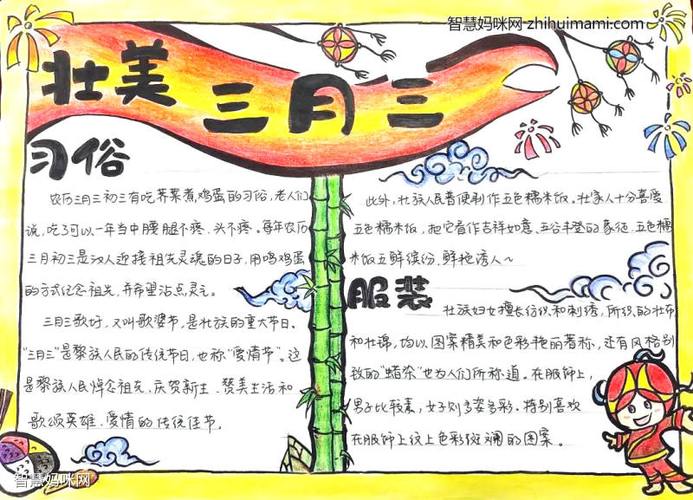 智慧妈咪网-zhihuimami.com
壮美
三月三
习俗
农历三月三初三有吃荠菜煮鸡蛋的习俗,老人们
说,吃了可以一年当中腰腿不疼、头不疼。每年农历
三月初三是汉人迎接祖先灵魂的日子,用鸣鸡蛋
的方式纪念祖先,并希望沾点灵气。
三月三歌好,又叫歌婆节,是壮族的重大节日。
"三月三"是黎族人民的传统节日,也称"爱情节"。这
是黎族人民悼念祖先、庆贺新生、赞美生活和
歌颂英雄、爱情的传统佳节。
此外,壮族人民喜便制作五色糯米饭。壮家人十分喜爱
五色糯米饭,把它看作吉祥如意、五谷丰登的象征,五色糯
米饭五鲜缤纷,鲜艳诱人~
服装
壮族妇女擅长纺织和刺绣,所织的壮布
和壮锦,均以图案精美和色彩艳丽著称,还有风格别
致的"蜡染"也为人们所称道。在服饰上,
男子比较素,女子则多姿多彩。特别喜欢
在服饰上纹上色彩斑斓的图案。
智慧妈咪网